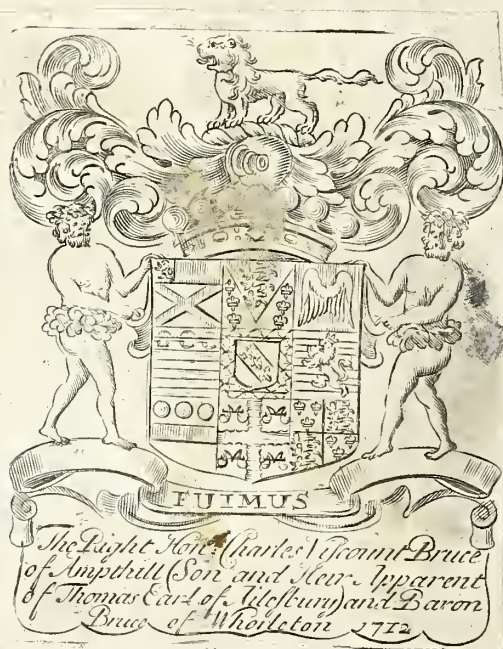 FUIMUS
The Right Honᵉ: Charles Viscount Bruce
of Ampthill (Son and Heir Apparent
of Thomas Earl of Ailesbury) and Baron
Bruce of Whorleton 1712